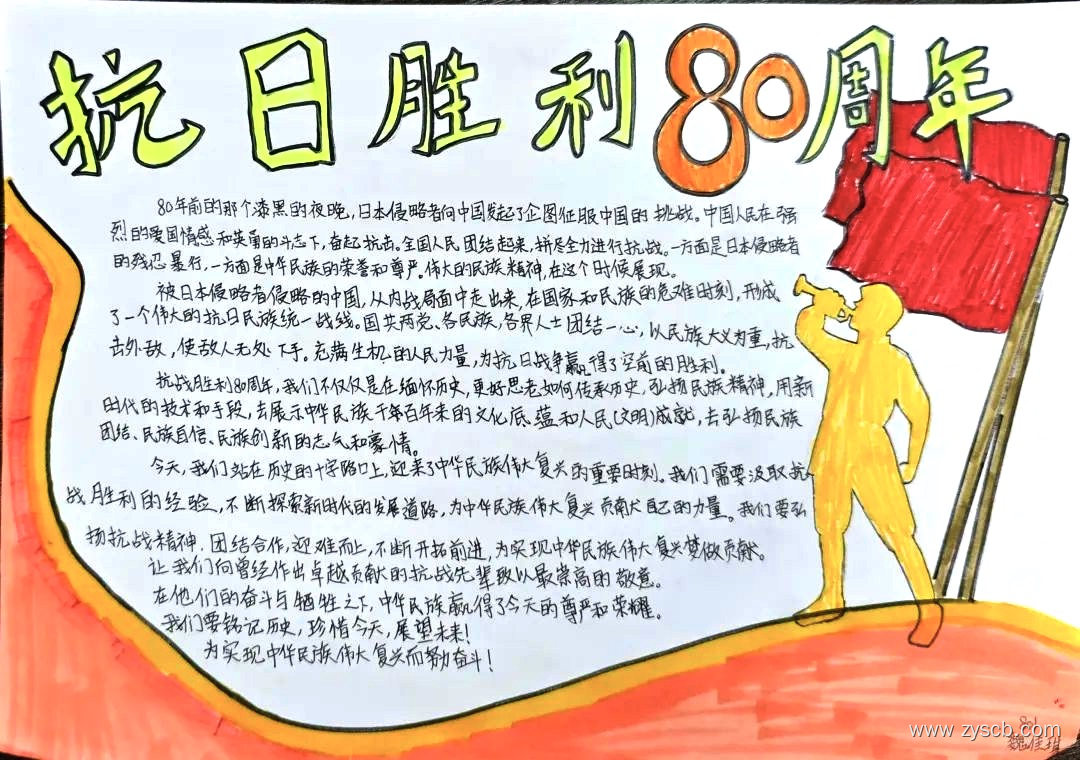 抗日胜利80周年
80年前的那个漆黑的夜晚,日本侵略者向中国发起了企图征服中国的挑战。中国人民在强
烈的爱国情感和英勇的斗志下,奋起抗击。全国人民团结起来,拼尽全力进行抗战。一方面是日本侵略者
的残忍暴行,一方面是中华民族的荣誉和尊严。伟大的民族精神,在这个时候展现。
被日本侵略者侵略的中国,从内战局面中走出来,在国家和民族的危难时刻,形成
了一个伟大的抗日民族统一战线。国共两党、各民族,各界人士团结一心,以民族大义为重,抗
击外敌,使敌人无处下手。充满生机的人民力量,为抗日战争赢得了空前的胜利。
抗战胜利80周年,我们不仅仅是在缅怀历史,更好思考如何传承历史,弘扬民族精神,用新
时代的技术和手段,去展示中华民族千年百年来的文化底蕴和人民(文明)成就,去弘扬民族
团结、民族自信、民族创新的志气和豪情。
今天,我们站在历史的十字路口上,迎来了中华民族伟大复兴的重要时刻。我们需要汲取抗
战胜利的经验,不断探索新时代的发展道路,为中华民族伟大复兴贡献自己的力量。我们要弘
扬抗战精神,团结合作,迎难而上,不断开拓前进,为实现中华民族伟大复兴梦做贡献。
让我们向曾经作出卓越贡献的抗战先辈致以最崇高的敬意。
在他们的奋斗与牺牲之下,中华民族赢得了今天的尊严和荣耀。
我们要铭记历史,珍惜今天,展望未来!
为实现中华民族伟大复兴而努力奋斗!
www.zyscb.com